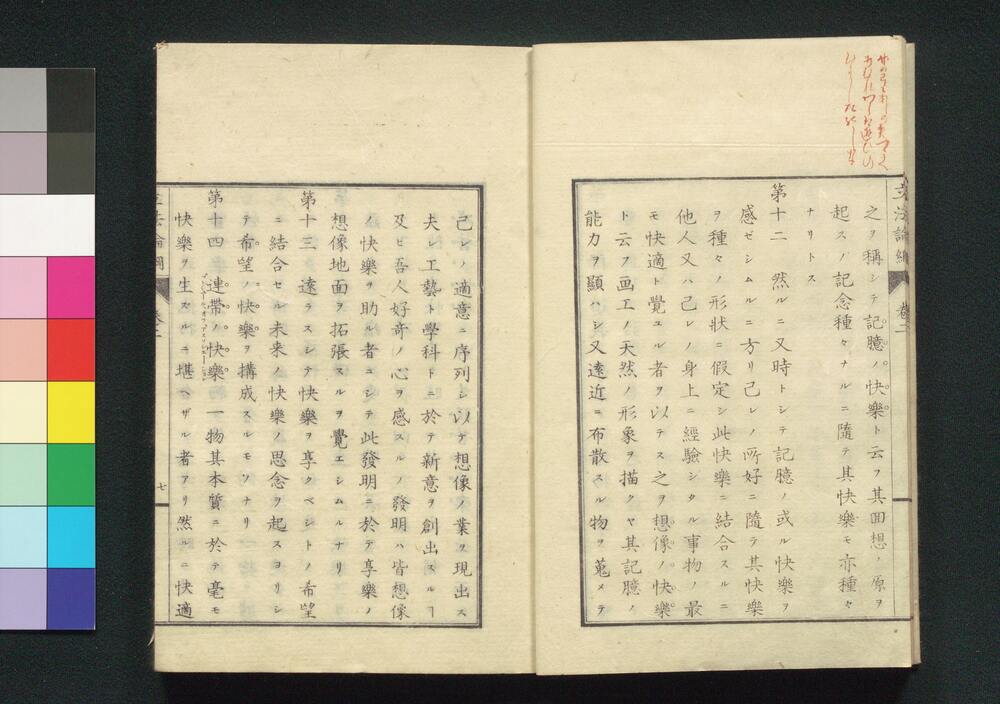 立法論綱 卷二
之ヲ稱シテ記臆ノ快樂ト云フ其回想ノ原ヲ
起スノ記念種々ナルニ隨テ其快樂モ亦種々
ナリトス
第十二 然ルニ又時トシテ記臆ノ或ル快樂ヲ
感ゼシムルニ方リ己レノ所好ニ隨テ其快樂
ヲ種々ノ形狀ニ假定シ此快樂ニ結合スルニ
他人又ハ己レノ身上ニ經驗シタル事物ノ最
モ快適ト覺ユル者ヲ以テス之ヲ想像ノ快樂
ト云フ画工ノ天然ノ形象ヲ描クヤ其記臆ノ
能力ヲ顯ハシ又遠近ニ布散スル物ヲ蒐メテ
己レノ適意ニ序列シ以テ想像ノ業ヲ現出ス
夫レ工藝ト學科トニ於テ新意ヲ創出スルヿ
及ビ吾人好竒ノ心ヲ感スルノ發明ハ皆想像
ノ快樂ヲ助ル者ニシテ此發明ニ於テ享樂ノ
想像地面ヲ拓張スルヲ覺エシムルナリ
第十三 遠ラスシテ快樂ヲ享クベシトノ希望
ニ結合セル未来ノ快樂ノ思念ヲ起スヨリシ
テ希望ノ快樂ヲ搆成スルモノナリ
第十四 連帶ノ快樂 一物其本質ニ於テ毫モ
快樂ヲ生スルニ堪ヘザル者アリ然ルニ快適
立法論綱 卷二 七